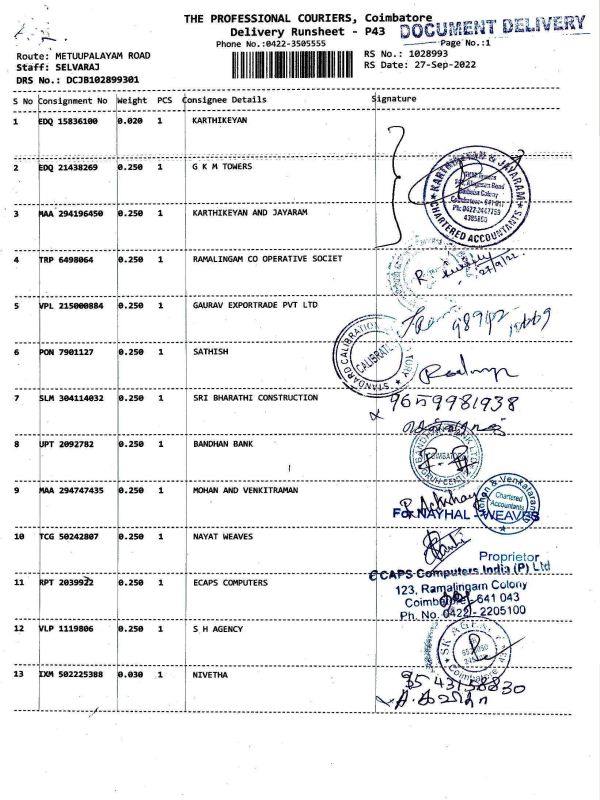 THE PROFESSIONAL COURIERS, Coimbatore
Delivery Runsheet - P43
DOCUMENT DELIVERY
Phone No.:0422-3505555
Page No.:1
Route: METUUPALAYAM ROAD
RS No.: 1028993
Staff: SELVARAJ
RS Date: 27-Sep-2022
DRS No.: DCJB102899301
S No Consignment No Weight PCS Consignee Details Signature
1 EDQ 15836100 0.020 1 KARTHIKEYAN
2 EDQ 21438269 0.250 1 G K M TOWERS
KARTHIKEYAN & JAYARAM
Colony
Coimbatore
CHARTERED ACCOUNTANTS
3 MAA 294196450 0.250 1 KARTHIKEYAN AND JAYARAM
4 TRP 6498064 0.250 1 RAMALINGAM CO OPERATIVE SOCIET
27/9/22
5 VPL 215000884 0.250 1 GAURAV EXPORTRADE PVT LTD
STANDARD CALIBRATION
CALIBRATI
6 PON 7901127 0.250 1 SATHISH
7 SLM 304114032 0.250 1 SRI BHARATHI CONSTRUCTION
9659981938
8 UPT 2092782 0.250 1 BANDHAN BANK
9 MAA 294747435 0.250 1 MOHAN AND VENKITRAMAN
Mohan & Venkataraman
Chartered
Accountants
For NAYHAL WEAVES
10 TCG 50242807 0.250 1 NAYAT WEAVES
Proprietor
ECAPS Computers India (P) Ltd
11 RPT 2039922 0.250 1 ECAPS COMPUTERS
123, Ramalingam Colony
Coimbatore - 641 043
Ph. No. 0422 - 2205100
12 VLP 1119806 0.250 1 S H AGENCY
13 IXM 502225388 0.030 1 NIVETHA
9543158830